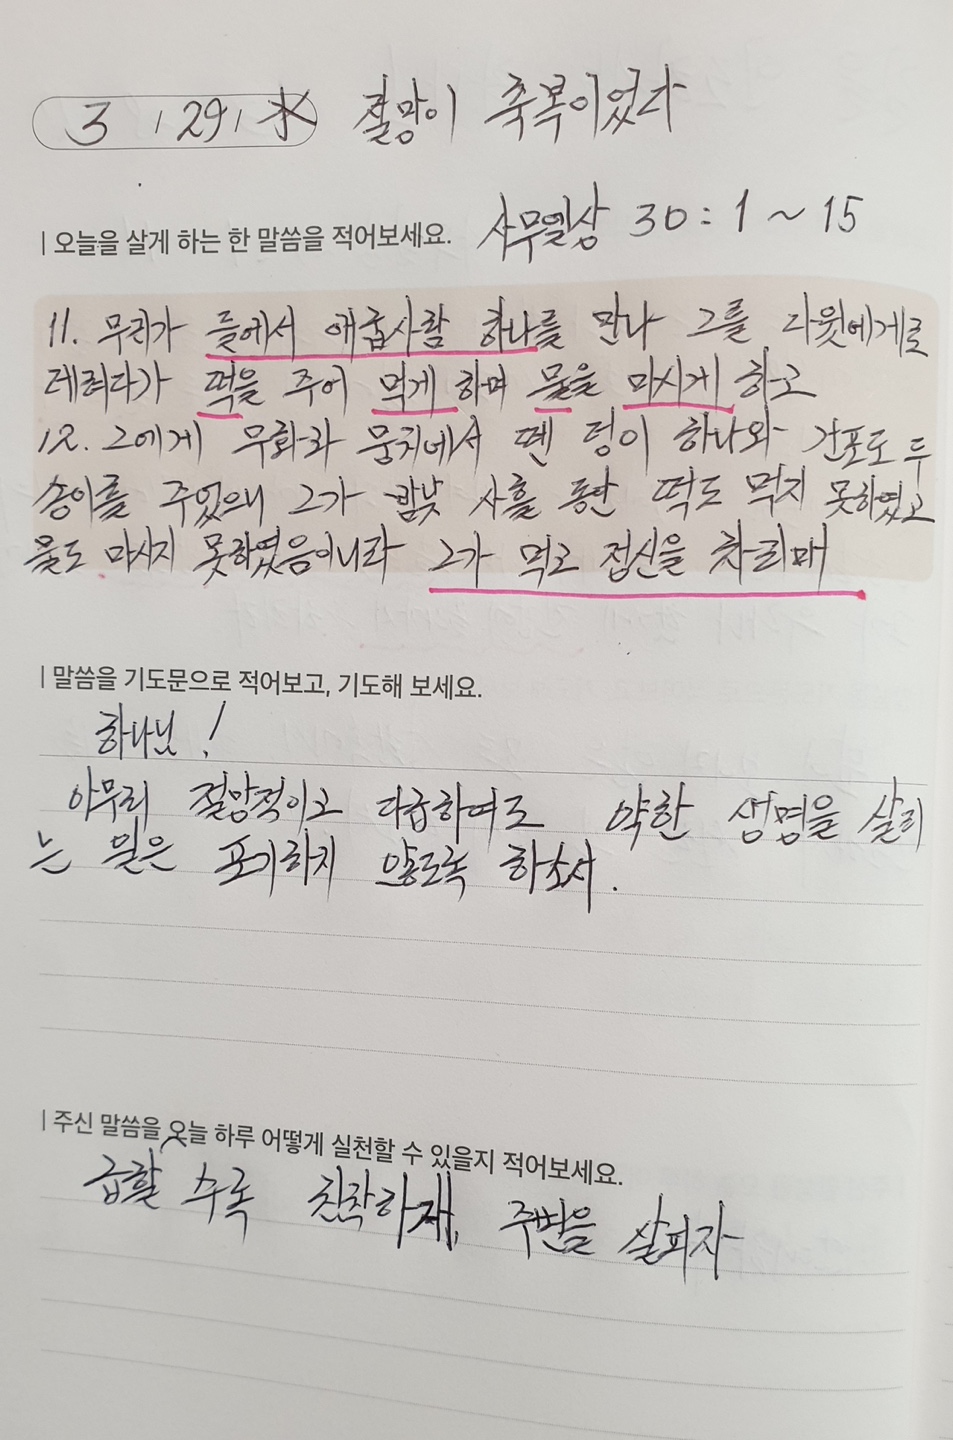 3 / 29 / 水 절망이 축복이었다
| 오늘을 살게 하는 한 말씀을 적어보세요. 사무엘상 30 : 1 ~ 15
11. 무리가 들에서 애굽사람 하나를 만나 그를 다윗에게로
데려다가 떡을 주어 먹게 하며 물을 마시게 하고
12. 그에게 무화과 뭉치에서 뗀 덩이 하나와 건포도 두
송이를 주었으니 그가 밤낮 사흘 동안 떡도 먹지 못하였고
물도 마시지 못하였음이니라 그가 먹고 정신을 차리매
| 말씀을 기도문으로 적어보고, 기도해 보세요.
하나님!
아무리 절망적이고 다급하여도 약한 생명을 살리
는 일은 포기하지 않도록 하소서.
| 주신 말씀을 오늘 하루 어떻게 실천할 수 있을지 적어보세요.
급할 수록 침착하게, 주변을 살피자